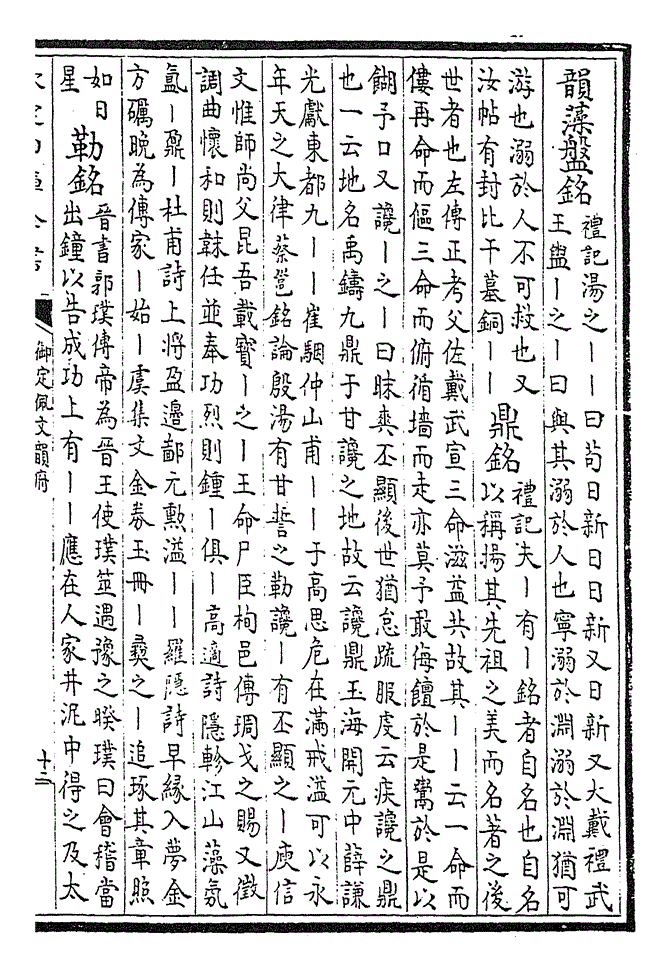 韻藻盤銘
禮記湯之丨丨曰苟日新日日新又日新又大戴禮武
王盥丨之丨曰與其溺於人也寧溺於淵溺於淵猶可
游也溺於人不可救也又
汝帖有封比干墓銅丨丨
鼎銘
禮記夫丨有丨銘者自名也自名
以稱揚其先祖之美而名著之後
世者也左傳正考父佐戴武宣三命滋益共故其丨丨云一命而
僂再命而傴三命而俯循墻而走亦莫予敢侮饘於是鬻於是以
餬予口又讒丨之丨曰昧爽丕顯後世猶怠疏服虔云疾讒之鼎
也一云地名禹鑄九鼎于甘讒之地故云讒鼎玉海開元中薛謙
光獻東都九丨丨崔駰仲山甫丨丨于高思危在滿戒溢可以永
年天之大律蔡邕銘論殷湯有甘誓之勒讒丨有丕顯之丨庾信
文惟師尚父昆吾載寶丨之丨王命尸臣栒邑傳琱戈之賜又徵
調曲懷和則韎任並奉功烈則鍾丨俱丨高適詩隱軫江山藻氛
氳丨鼐丨杜甫詩上將盈邊鄙元勲溢丨丨羅隱詩早緣入夢金
方礪晚為傳家丨始丨虞集文金券玉冊丨彞之丨追琢其章照
如日
星
勒銘
晉書郭璞傳帝為晉王使璞筮遇豫之暌璞曰會稽當
出鐘以告成功上有丨丨應在人家井泥中得之及太
御定佩文韻府